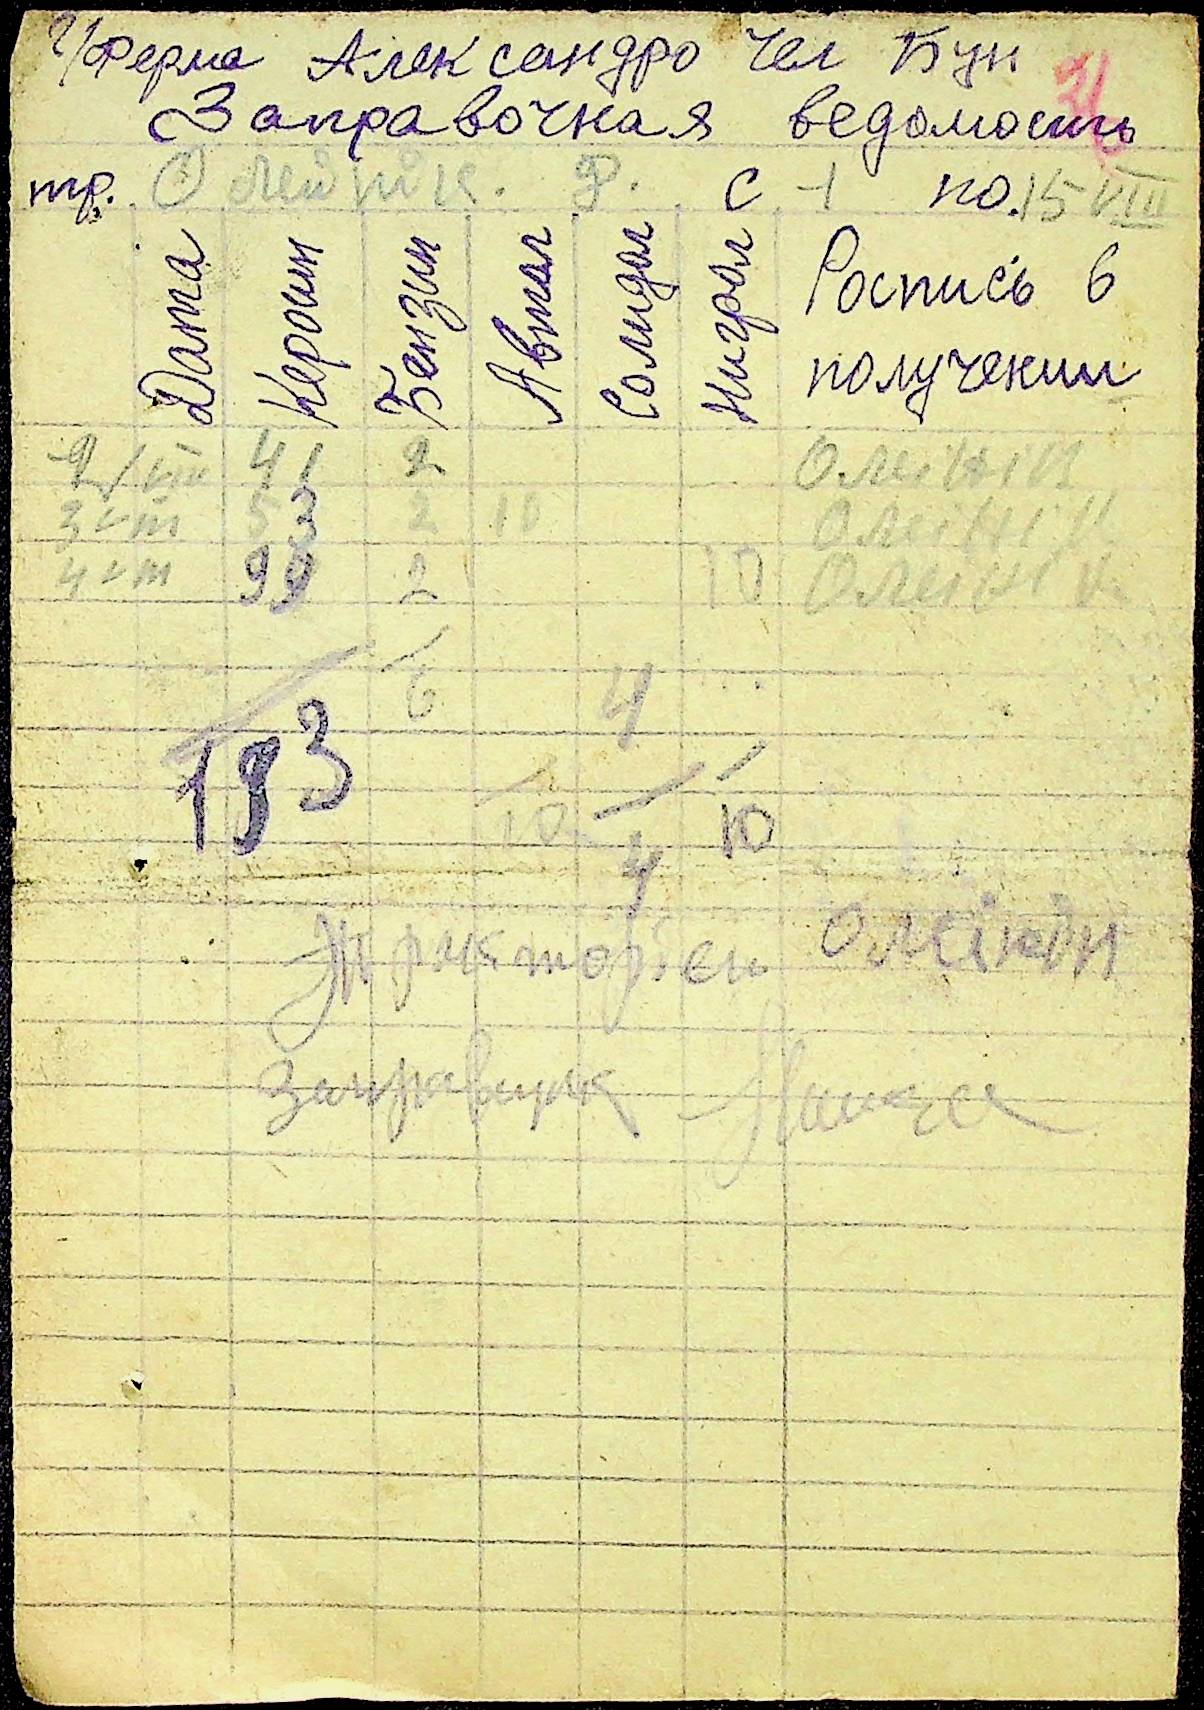 Ферма Александро чел Бун
31
Заправочная ведомость
тр. Олейник. Ф. с 1 по 15 VIII
Дата Кероин Бензин Автол Солидол Нигрол Роспись в получении
2/VIII 41 2 Олейнік
3 VIII 53 2 10 Олейнік
4 VIII 99 2 10 Олейнік
6 4
193
10 4 10
Тракторіст Олейнік
Заправщик